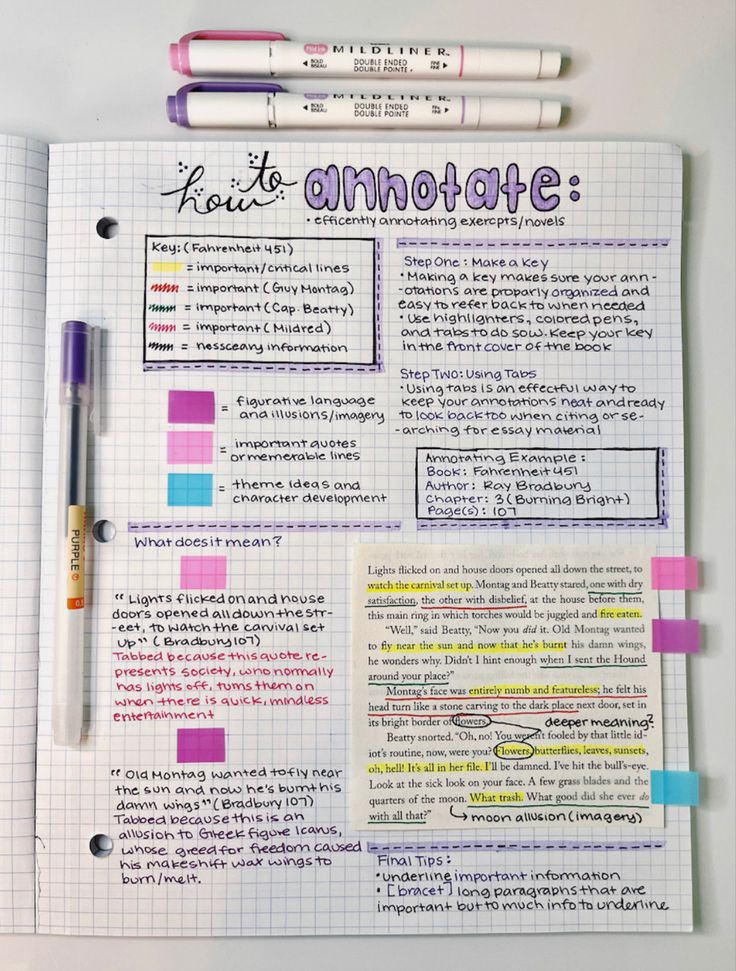 MILDLINER™
BOLD
BISEAU
DOUBLE ENDED
DOUBLE POINTE
FINE
FINE
MILDLINER™
BOLD
BISEAU
DOUBLE ENDED
DOUBLE POINTE
FINE
FINE
how to annotate:
• efficently annotating exercpts/novels
Key: (Fahrenheit 451)
= important/critical lines
= important (Guy Montag)
= important (Cap. Beatty)
= important (Mildred)
= nessceary information
Step One: Make a Key
• Making a key makes sure your ann-
-otations are properly organized and
easy to refer back to when needed
• Use highlighters, colored pens,
and tabs to do sow. Keep your key
in the front cover of the book
= figurative language
and illusions/imagery
= important quotes
or memerable lines
= theme ideas and
character development
Step Two: Using Tabs
• Using tabs is an effectful way to
keep your annotations neat and ready
to look back too when citing or se-
-arching for essay material
Annotating Example:
Book: Fahrenheit 451
Author: Ray Bradbury
Chapter: 3 (Burning Bright)
Page(s): 107
PURPLE
What does it mean?
"Lights flicked on and house
doors opened all down the str-
-eet, to watch the carvival set
up" (Bradbury 107)
Tabbed because this quote re-
presents society, who normally
has lights off, turns them on
when there is quick, mindless
entertainment
"Old Montag wanted to fly near
the sun and now he's burnt his
damn wings" (Bradbury 107)
Tabbed because this is an
allusion to Greek figure Icarus,
whose greed for freedom caused
his makeshift wax wings to
burn/melt.
Lights flicked on and house doors opened all down the street, to
watch the carnival set up. Montag and Beatty stared, one with dry
satisfaction, the other with disbelief, at the house before them,
this main ring in which torches would be juggled and fire eaten.
"Well," said Beatty, "Now you did it. Old Montag wanted
to fly near the sun and now that he's burnt his damn wings,
he wonders why. Didn't I hint enough when I sent the Hound
around your place?"
Montag's face was entirely numb and featureless; he felt his
head turn like a stone carving to the dark place next door, set in
its bright border of flowers.
deeper meaning?
Beatty snorted. "Oh, no! You weren't fooled by that little id-
iot's routine, now, were you? Flowers, butterflies, leaves, sunsets,
oh, hell! It's all in her file. I'll be damned. I've hit the bull's-eye.
Look at the sick look on your face. A few grass blades and the
quarters of the moon. What trash. What good did she ever do
with all that?"
moon allusion (imagery)
Final Tips:
• underline important information
• [bracet] long paragraphs that are
important but to much info to underline